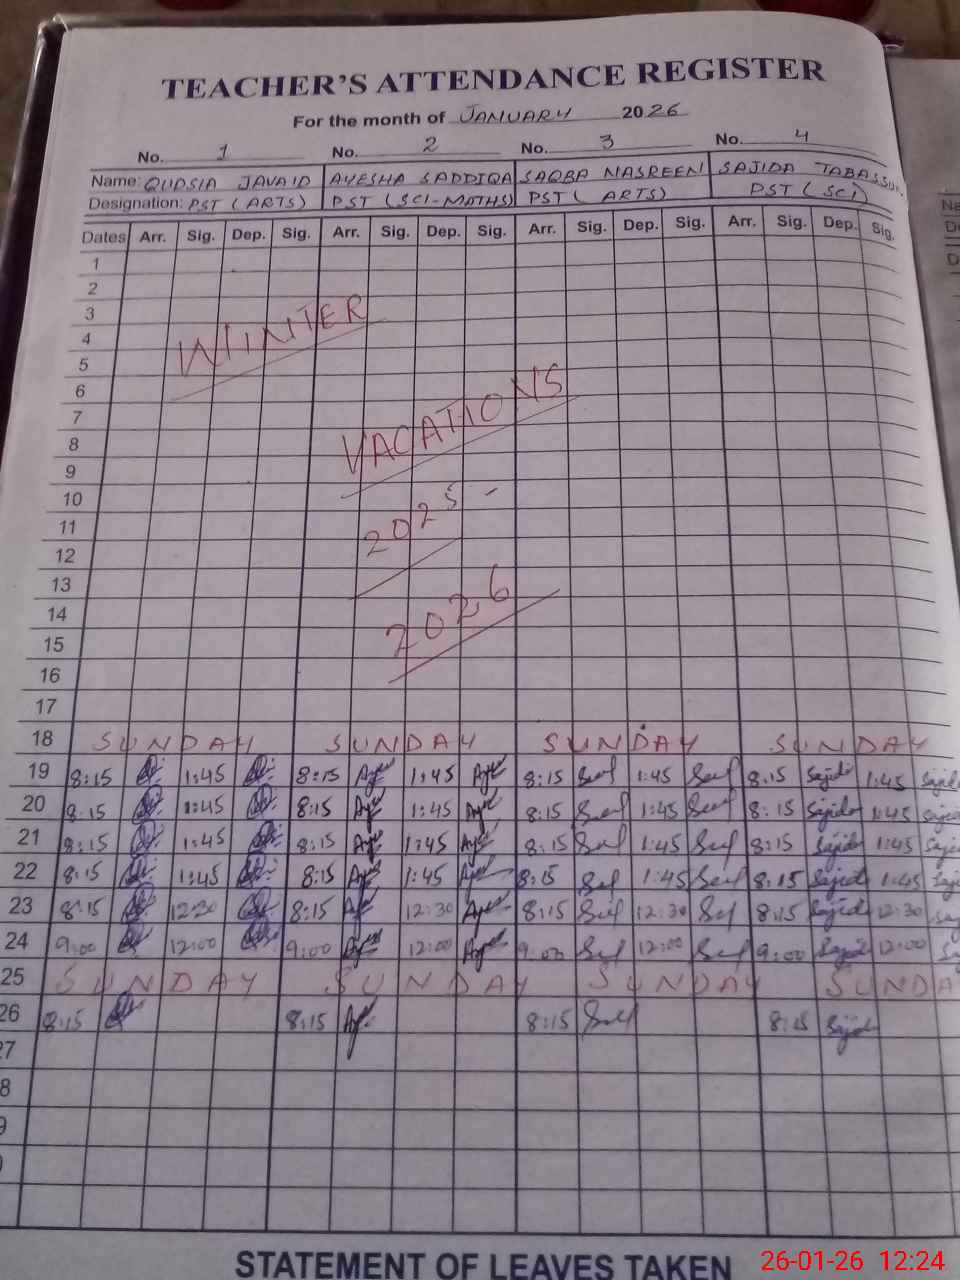 TEACHER'S ATTENDANCE REGISTER
For the month of JANUARY 2026
No. 1 No. 2 No. 3 No. 4
Name: QUDSIA JAVAID AYESHA SADDIQA SAQBA NASREEN SAJIDA TABASSUM
Designation: PST (ARTS) PST (SCI-MATHS) PST (ARTS) PST (SCI)
Dates Arr. Sig. Dep. Sig. Arr. Sig. Dep. Sig. Arr. Sig. Dep. Sig. Arr. Sig. Dep. Sig.
1
2
3
4
5
6
7
8
9
10
11
12
13
14
15
16
17
WIINTER
VACATIONS
2025 -
2026
18 SUNDAY SUNDAY SUNDAY SUNDAY
19 8:15 1:45 8:15 1:45 8:15 1:45 8:15 Sajida 1:45 Sajida
20 8:15 1:45 8:15 1:45 8:15 1:45 8:15 Sajida 1:45
21 8:15 1:45 8:15 1:45 8:15 1:45 8:15 Sajida 1:45
22 8:15 1:45 8:15 1:45 8:15 1:45 8:15 Sajida 1:45
23 8:15 12:30 8:15 12:30 8:15 12:30 8:15 Sajida 12:30
24 9:00 12:00 9:00 12:00 9:00 12:00 9:00 Sajida 12:00
25 SUNDAY SUNDAY SUNDAY SUNDA
26 8:15 8:15 8:15 8:15 Sajida
27
8
9
STATEMENT OF LEAVES TAKEN
26-01-26 12:24